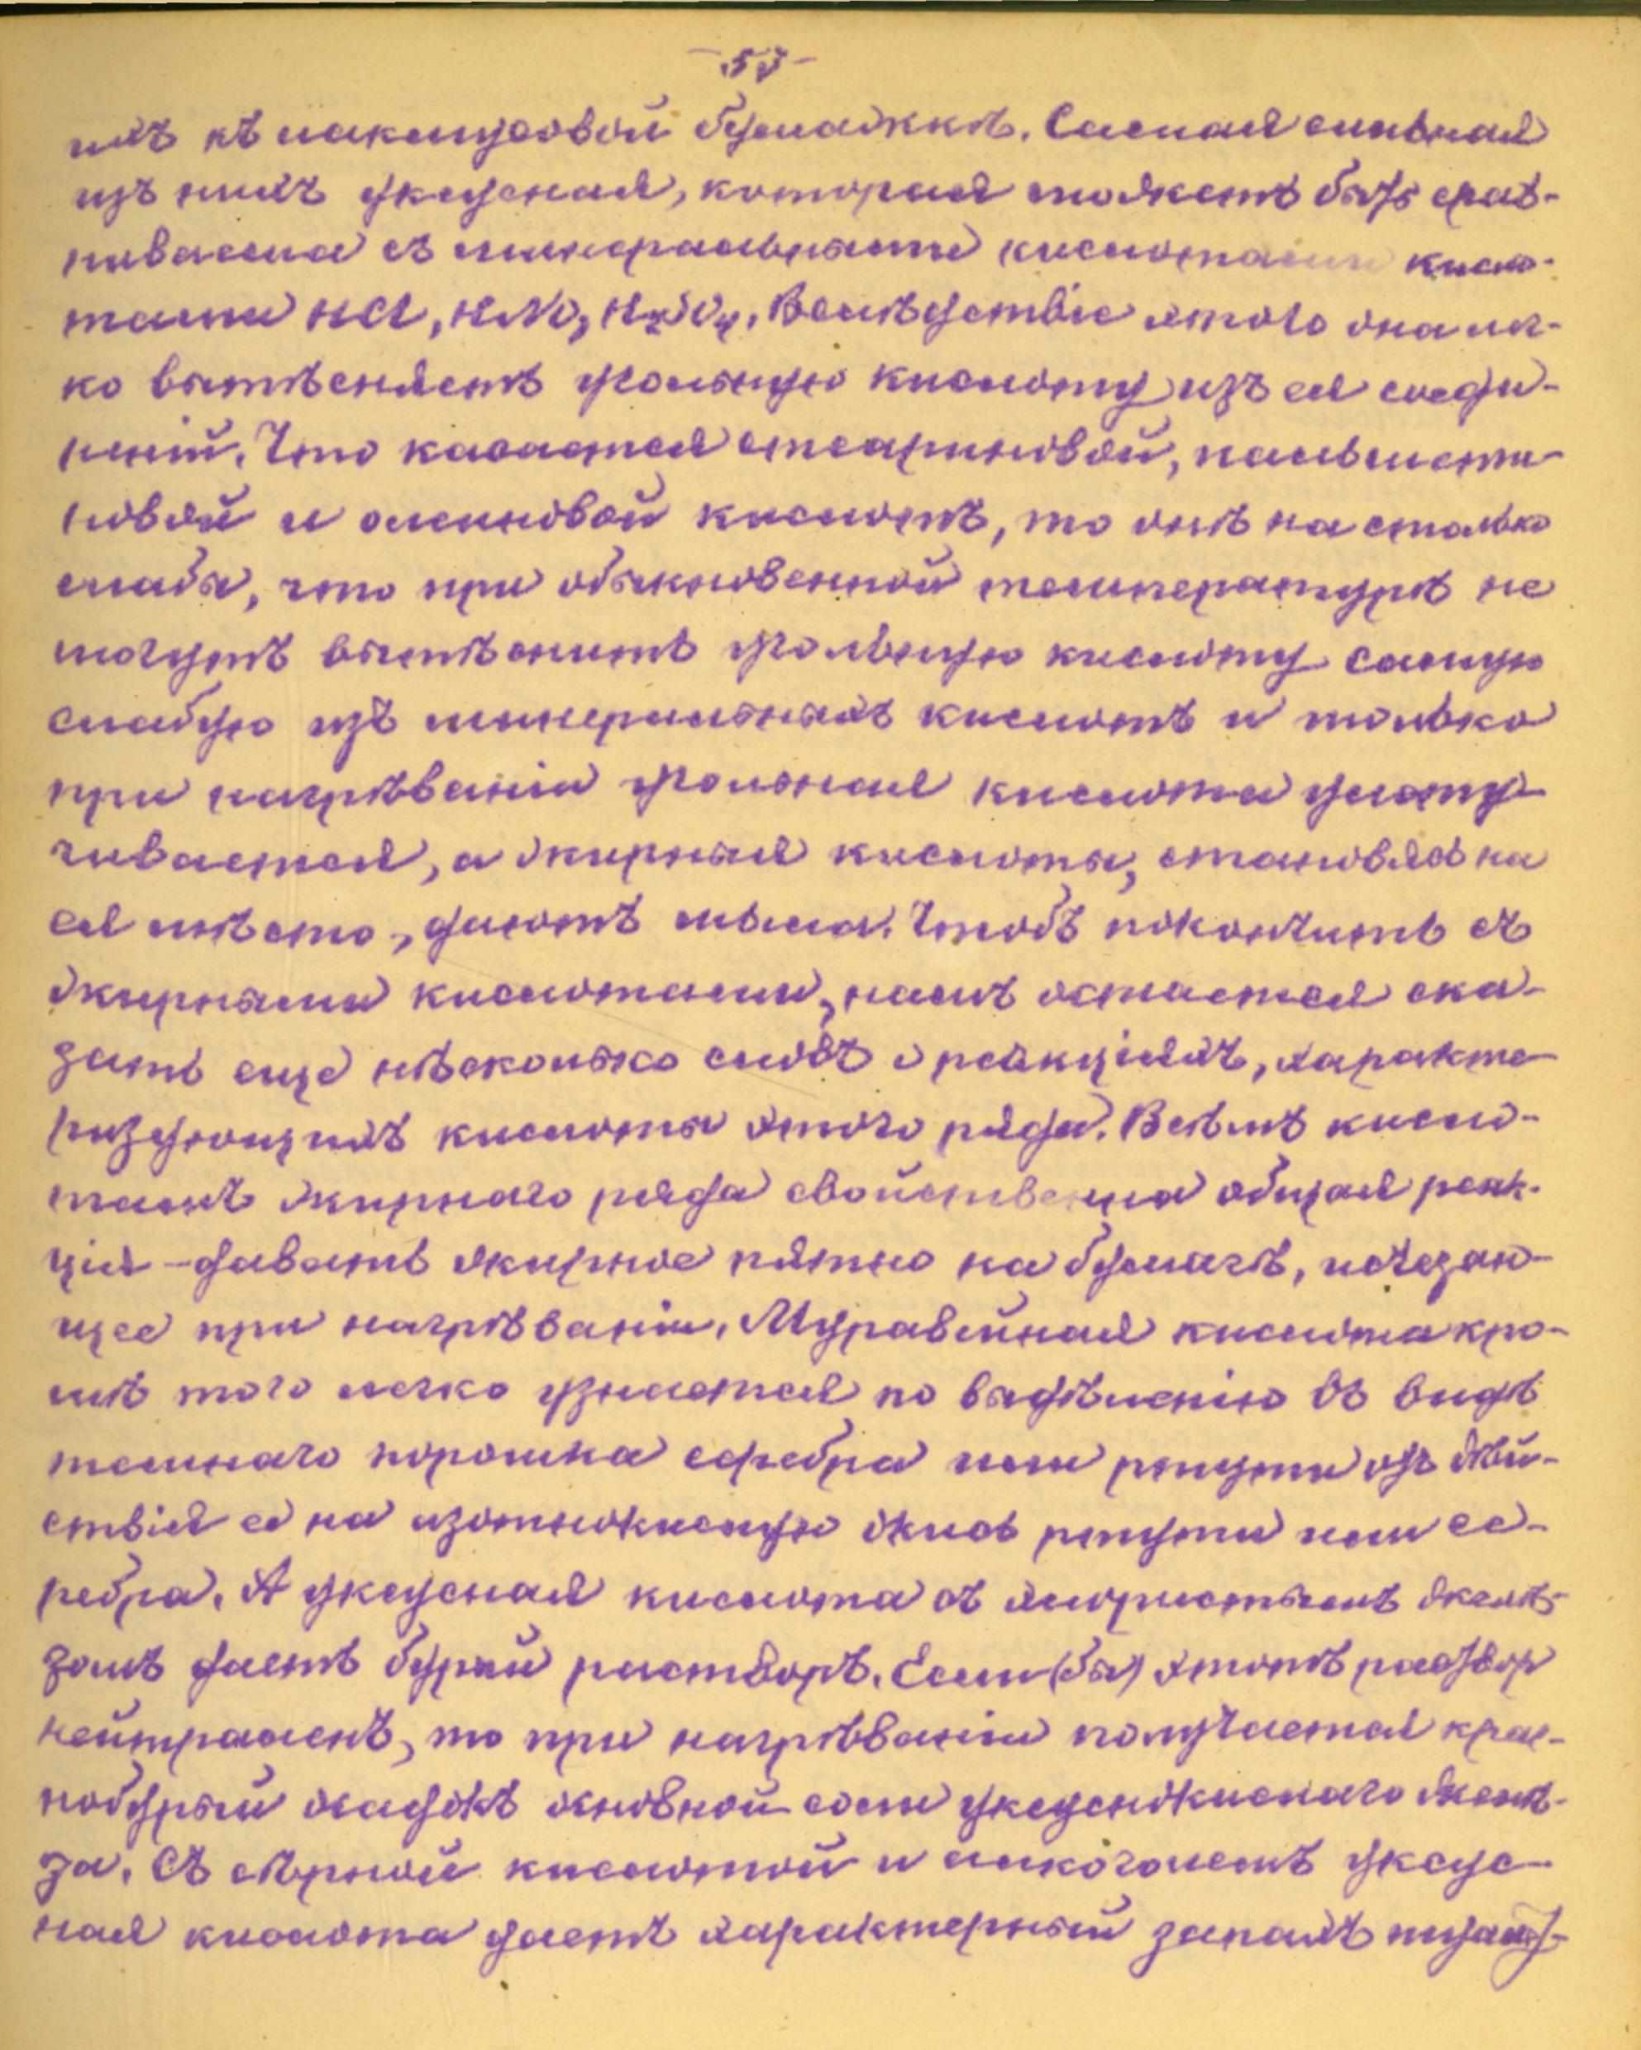 -53-
нихъ къ лакмусовой бумажкѣ. Самая сильная
изъ нихъ уксусная, которая можетъ быть срав-
ниваема съ минеральными кислотами кисло-
тами HCl, HNO3, H2SO4. Вслѣдствіе этого она лег-
ко вытѣсняетъ угольную кислоту изъ ея соеди-
неній. Что касается стеариновой, пальмити-
новой и олеиновой кислотъ, то онѣ на столько
слабы, что при обыкновенной температурѣ не
могутъ вытѣснить угольную кислоту самую
слабую изъ минеральныхъ кислотъ и только
при нагрѣваніи угольная кислота улету-
чивается, а жирныя кислоты, становясь на
ея мѣсто, даютъ мыла. Чтобъ покончить съ
жирными кислотами, намъ остается ска-
зать еще нѣсколько словъ о реакціяхъ, характе-
ризующихъ кислоты этого ряда. Всѣмъ кисло-
тамъ жирнаго ряда свойственна общая реак-
ція - давать жирное пятно на бумагѣ, исчезаю-
щее при нагрѣваніи. Муравьиная кислота кро-
мѣ того легко узнается по выдѣленію въ видѣ
темнаго порошка серебра или ртути отъ дѣй-
ствія ея на азотнокислую окись ртути или се-
ребра. А уксусная кислота съ хлористымъ желѣ-
зомъ даетъ бурый растворъ. Если (бы) этотъ раствор
нейтраленъ, то при нагрѣваніи получается крас-
нобурый осадокъ основной соли уксуснокислаго желѣ-
за. Съ сѣрной кислотой и алкоголемъ уксус-
ная кислота даетъ характерный запахъ